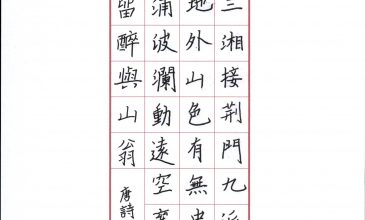 三湘接荊門九派
地外山色有無中
浦波瀾動遠空襄
留醉與山翁
唐詩